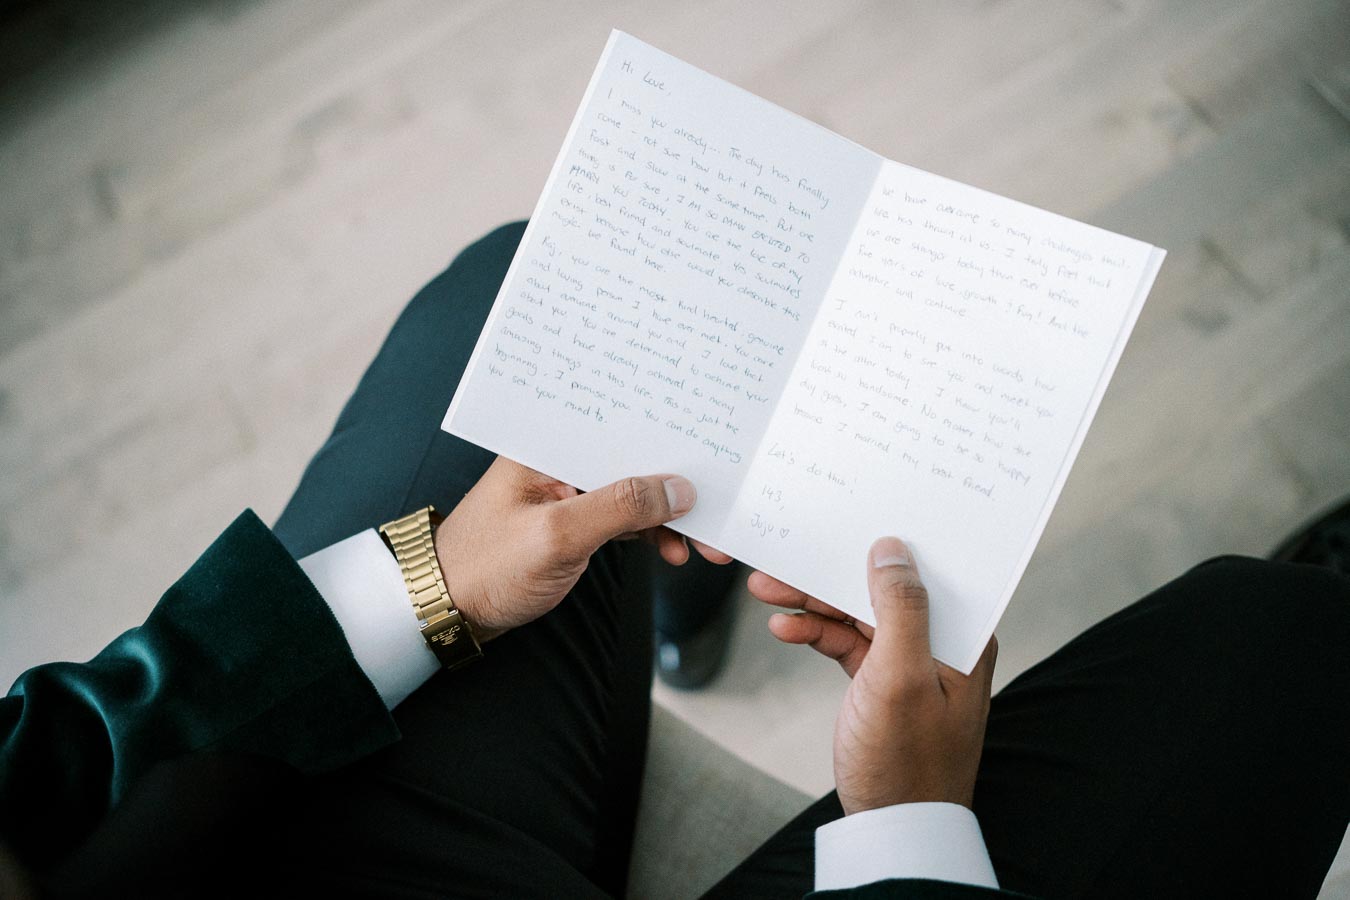 Hi Love,
I miss you already... The day has finally
come - not sure how but it feels both
fast and slow at the same time. But one
thing is for sure, I AM SO DAMN EXCITED TO
MARRY YOU TODAY. You are the love of my
life, best friend and soulmate. Yes soulmates
exist because how else would you describe this
magic we found here.
Raj, you are the most kind hearted, genuine
and loving person I have ever met. You care
about everyone around you and I love that
about you. You are determined to achieve your
goals and have already achieved so many
amazing things in this life. This is just the
beginning, I promise you. You can do anything
you set your mind to.
We have overcome so many challenges that
life has thrown at us. I truly feel that
we are stronger today than ever before.
Five years of love, growth & fun! And the
adventure will continue.
I can't properly put into words how
excited I am to see you and meet you
at the altar today. I know you'll
look so handsome. No matter how the
day goes, I am going to be so happy
because I married my best friend.
Let's do this!
143,
Juju ♡
SEIKO